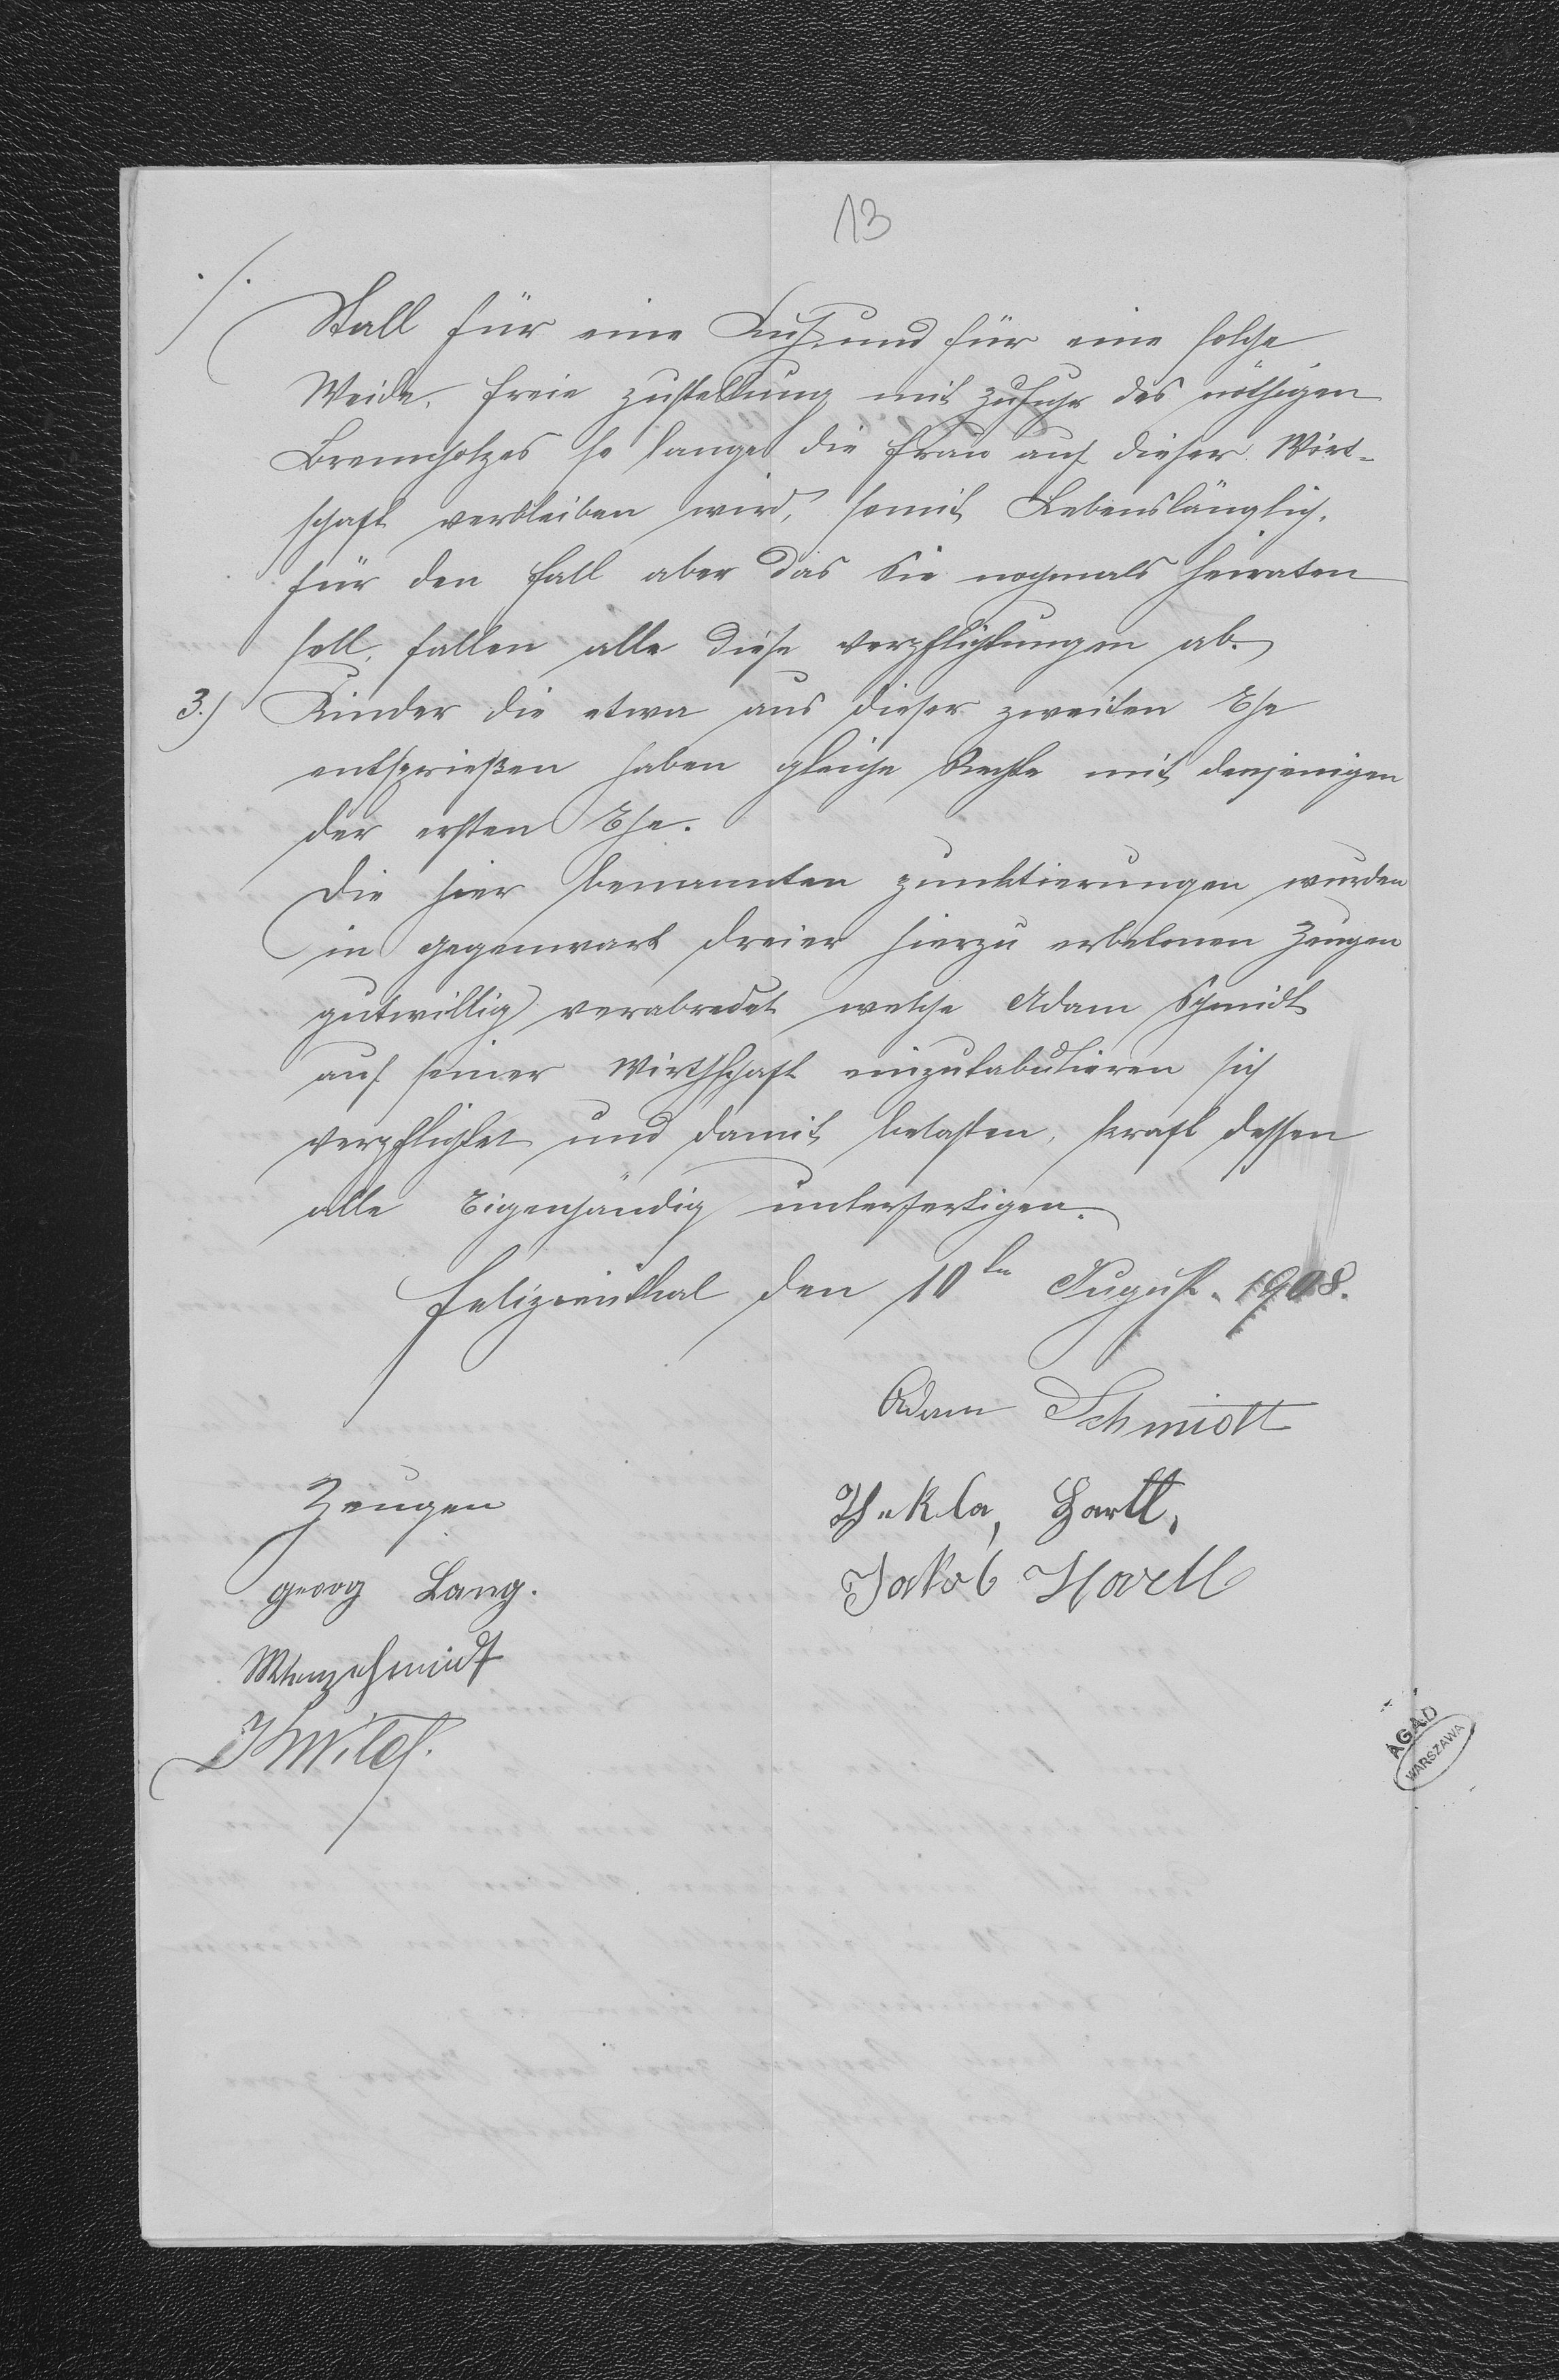 13
./.
Stall für eine Kuh und für eine solche
Weide. freie zustellung mit zufuhr des nöthigen
Brennholzes so lange die Frau auf dieser Wirt-
schaft verbleiben wird, somit Lebenslänglich.
für den Fall aber das Sie nochmals heiraten
soll, fallen alle diese verpflichtungen ab.
3.) Kinder die etwa aus dieser zweiten Ehe
entsprießen haben gleiche Rechte mit denjenigen
der ersten Ehe.
Die hier benannten punktierungen wurden
in gegenwart dreier hierzu erbetenen Zeugen
gutwillig verabredet welche Adam Schmidt
auf seiner Wirthschaft einzutabulieren sich
verpflichtet und damit belasten, kraft dessen
alle Eigenhändig unterfertigen.
Felizienthal den 10ten August. 1908.
Adam Schmidt
Zeugen
Thekla, Hartl,
Georg Lang.
Jakob Hartl
AGAD
WARSZAWA